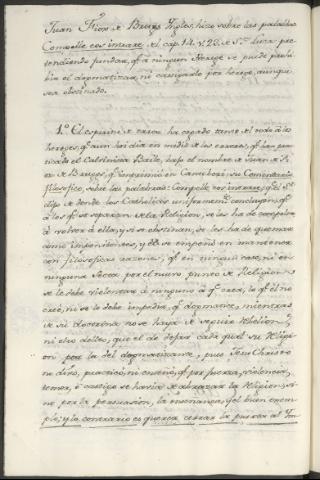 Juan Fiox de Bruges Ingles, hizo sobre las palabras
Compelle eos intrare, del cap. 14. v. 23. de Sn. Lucas pre-
tendiendo fundar, qe. a ningun Herege se puede prohi-
bir el dogmatizar, ni castigarlo por herege, aunque
sea obstinado.
1.o El espiritu de error ha cegado tanto de todo à los
hereges, qe. aun hoi dia en medio de los errores, qe. han pu-
blicado el Calvinista Baile, bajo el nombre de Juan de Fi-
de Bruges, qe. imprimiò en Cantorberi su Comentario
filosofico, sobre las palabras: Compelle eos intrare, qe. el Sr.
dijo de donde los Catholicos uniformemte. concluyen, qe.
à los qe. se separan de la Religion, se les ha de compeler
à volver à ella, y si se obstinan, se les ha de quemar
como impenitentes, y èl se empeñò en mantener
con filosoficas razones, qe. en ningun caso, ni en
ninguna Secta por el mero punto de Religion
se le debe violentar à ninguno à qe. crea, lo qe. èl no
cree, ni se le debe impedir, qe. dogmatize, mientras
de su doctrina no se haya de seguir rebelion,
ni otro delito, que el de dejar cada qual su Religi-
on por la del dogmatizante, pues Jesu Christo
no dijo, practicò, ni enseñò, qe. por fuerza, violencia,
temor, ò castigo se havia de abrazar la Religion, si-
no por la persuasion, la enseñanza, y el buen exem-
plo; y lo contrario es querer cerrar la puerta al